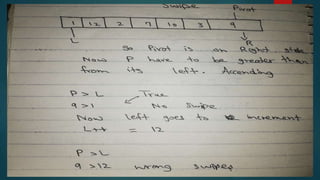 Swipe Pivot
1 12 2 7 10 3 9
L R
So Pivot is on Right side
Now P have to be greater than
from its left. Accending
P > L True
9 > 1 No Swipe
Now left goes to increment
L++ = 12
P > L
9 > 12 wrong swipes